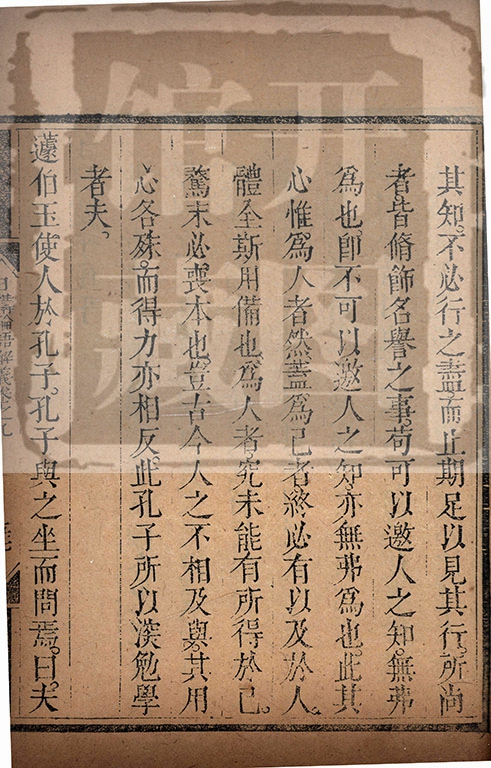 其知。不必行之盡。而止期足以見其行。所尚
者皆脩飾名譽之事。苟可以邀人之知。無弗
為也。卽不可以邀人之知。亦無弗為也。此其
心惟為人者然。蓋為己者。終必有以及於人。
體全斯用備也。為人者。究未能有所得於己。
騖末必喪本也。豈古今人之不相及與。其用
心各殊。而得力亦相反。此孔子所以深勉學
者夫。
蘧伯玉使人於孔子。孔子與之坐而問焉。曰。夫
日講四書解義卷之九